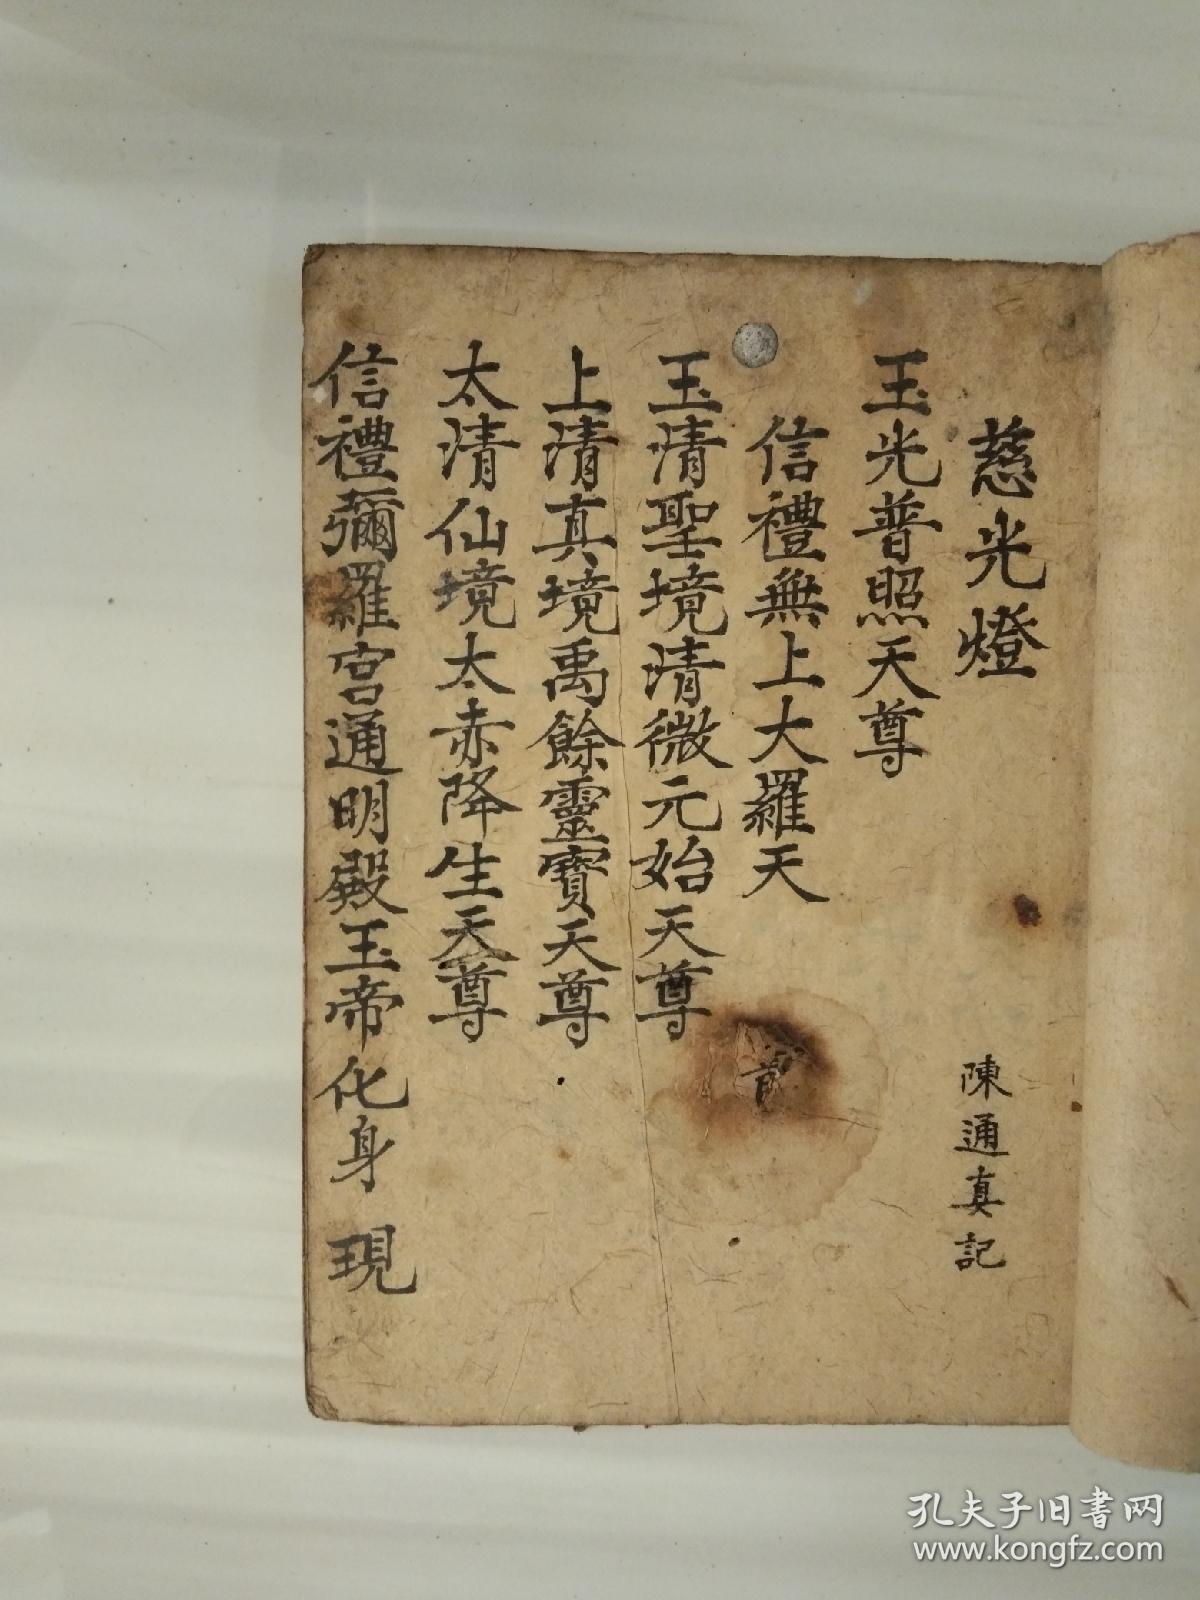 慈光燈
陳通真記
玉光普照天尊
信禮無上大羅天
玉清聖境清微元始天尊
上清真境禹餘靈寶天尊
太清仙境太赤降生天尊
信禮彌羅宮通明殿玉帝化身現
孔夫子旧书网
www.kongfz.com